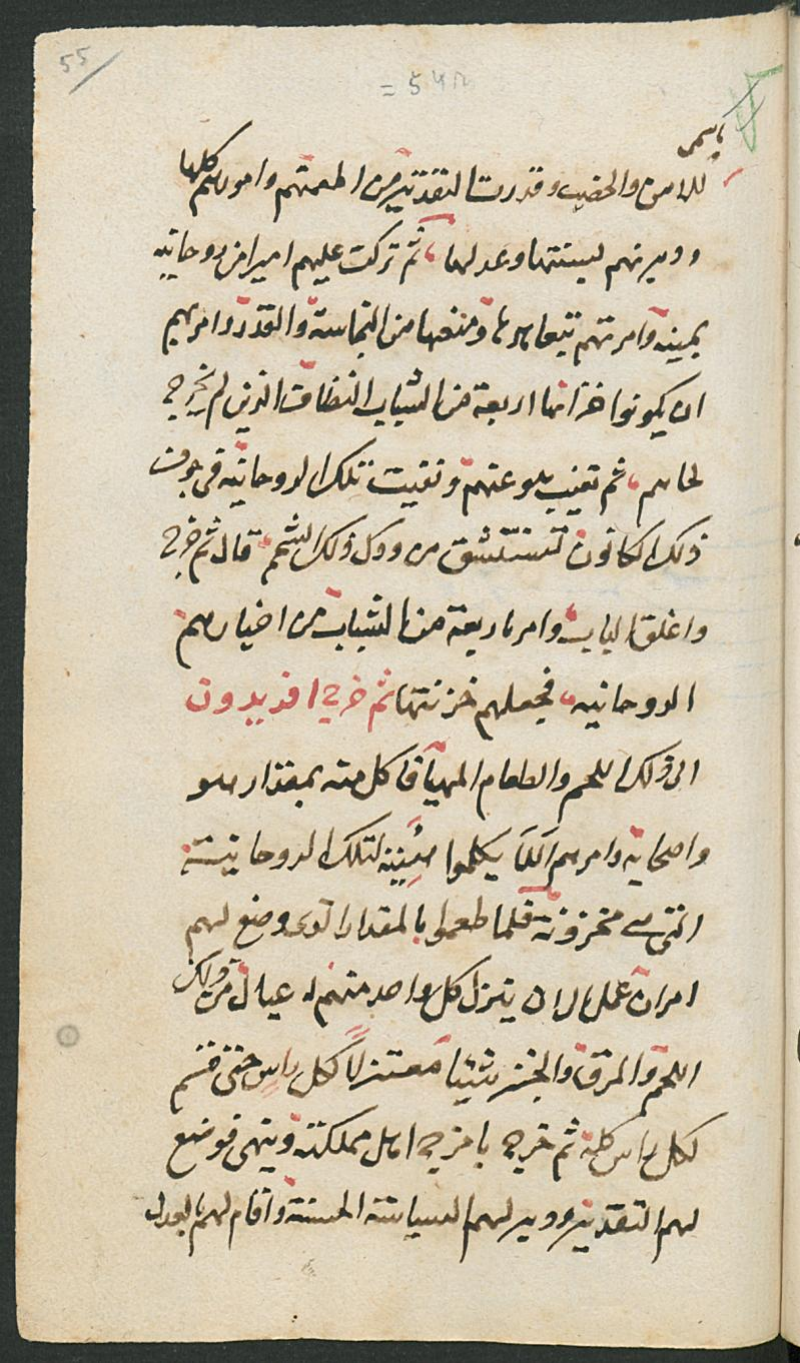 55
= 542
باسمى
للامن والخصب وقدرت التقدير من اطعمتهم وامورهم كلها
ودبرتهم لسنتها وعدلها ثم تركت عليهم اميرا من روحانيه
يمينه وامرتهم بتعاهدها ومنعها من النجاسة والقذر وامرهم
ان يكونوا خزانها اربعة من الشباب النظاف الذين لم يخرج
لحاهم ثم تغيب هو عنهم وتغيبت تلك الروحانيه فى جوف
ذلك الكانون تستنشق من ودك ذلك الشحم قال ثم خرج
واغلق الباب وامر باربعة من الشباب من اخيارهم
الروحانيه فجعلهم خزنتها ثم خرج افريدون
الى ذلك اللحم والطعام المهيأ فاكل منه بمقدار هو
واصحابه وامرهم الا يكلموا لتلك الروحانيته
التى هى مخزونة فلما طعموا بالمقدار الذى وضع لهم
امر ان ينزل كل واحد منهم الى عياله من ذلك
اللحم والمرق والخبز شيئا لكل راس حتى قسم
لكل راس كله ثم خرج اهل مملكته فوضع
لهم التقدير ودبر لهم السياسة الحسنة واقام لهم بالعدل